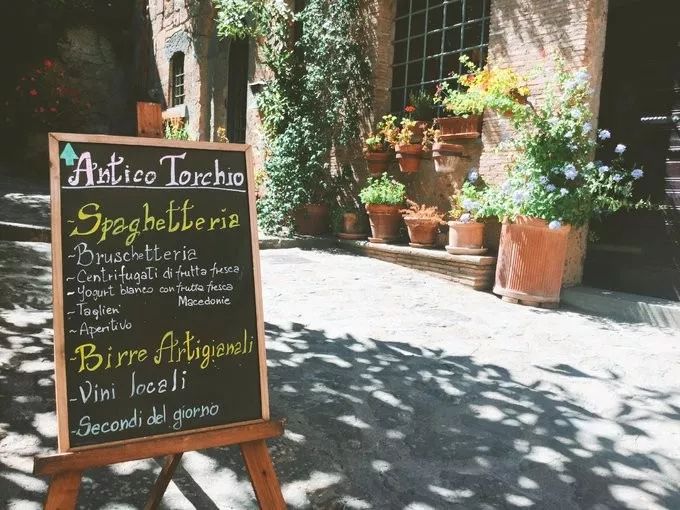 Antico Torchio
~Spaghetteria
~Bruschetteria
~Centrifugati di frutta fresca
~Yogurt bianco con frutta fresca
Macedonie
~Taglieri
~Aperitivo
~Birre Artigianali
~Vini locali
~Secondi del giorno